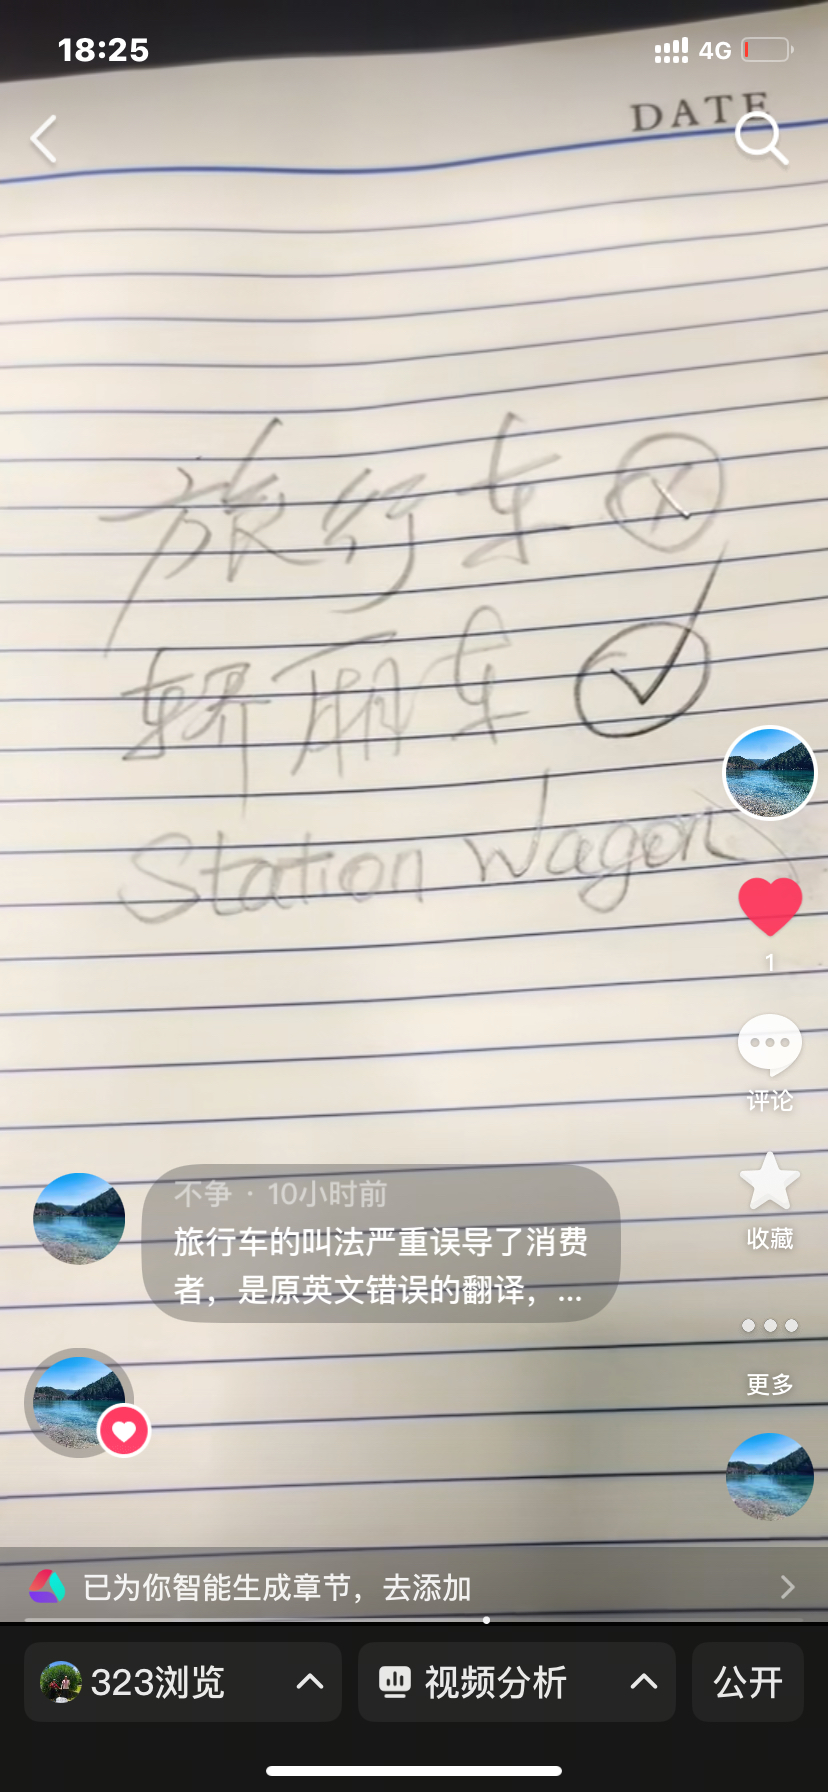 18:25
4G
DATE
旅行车
轿厢车
Station Wagon
1
评论
不争 · 10小时前
旅行车的叫法严重误导了消费
者，是原英文错误的翻译，...
收藏
更多
已为你智能生成章节，去添加
323浏览
视频分析
公开